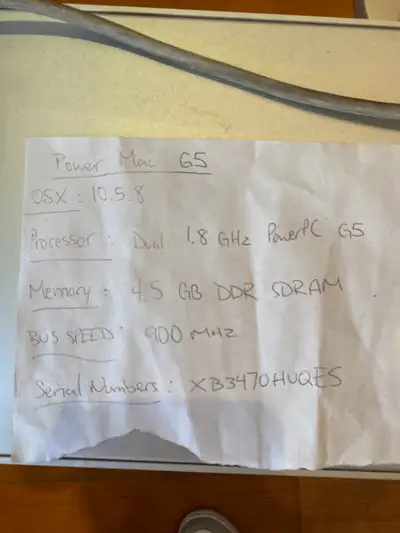 Power Mac G5
OSX : 10.5.8
Processor : Dual 1.8 GHz PowerPC G5
Memory : 4.5 GB DDR SDRAM
BUS SPEED : 900 MHz
Serial Numbers : XB3470HUQES